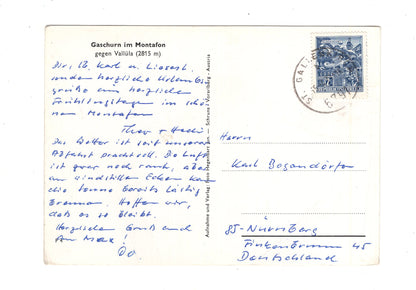 Gaschurn im Montafon
gegen Vallüla (2815 m)
Dir, lb. Karl u. Lieserl
senden herzliche Urlaubs-
grüße aus herrlichen
Frühlingstagen im schö-
nen Montafon
Theo + Hedi
Das Wetter ist seit unserer
Abfahrt prachtvoll. Die Luft
ist zwar noch rauh, aber
an windstillen Ecken kann
die Sonne bereits lästig
brennen. Hoffen wir,
daß es so bleibt.
Herzlichen Gruß auch
an Max!
D.O.
Aufnahme und Verlag: Risch-Lau, Bregenz
Schruns / Vorarlberg - Austria
ST. GAL
Herrn
Karl Bogendörfer
85-Nürnberg
Finkenbrunn 45
Deutschland